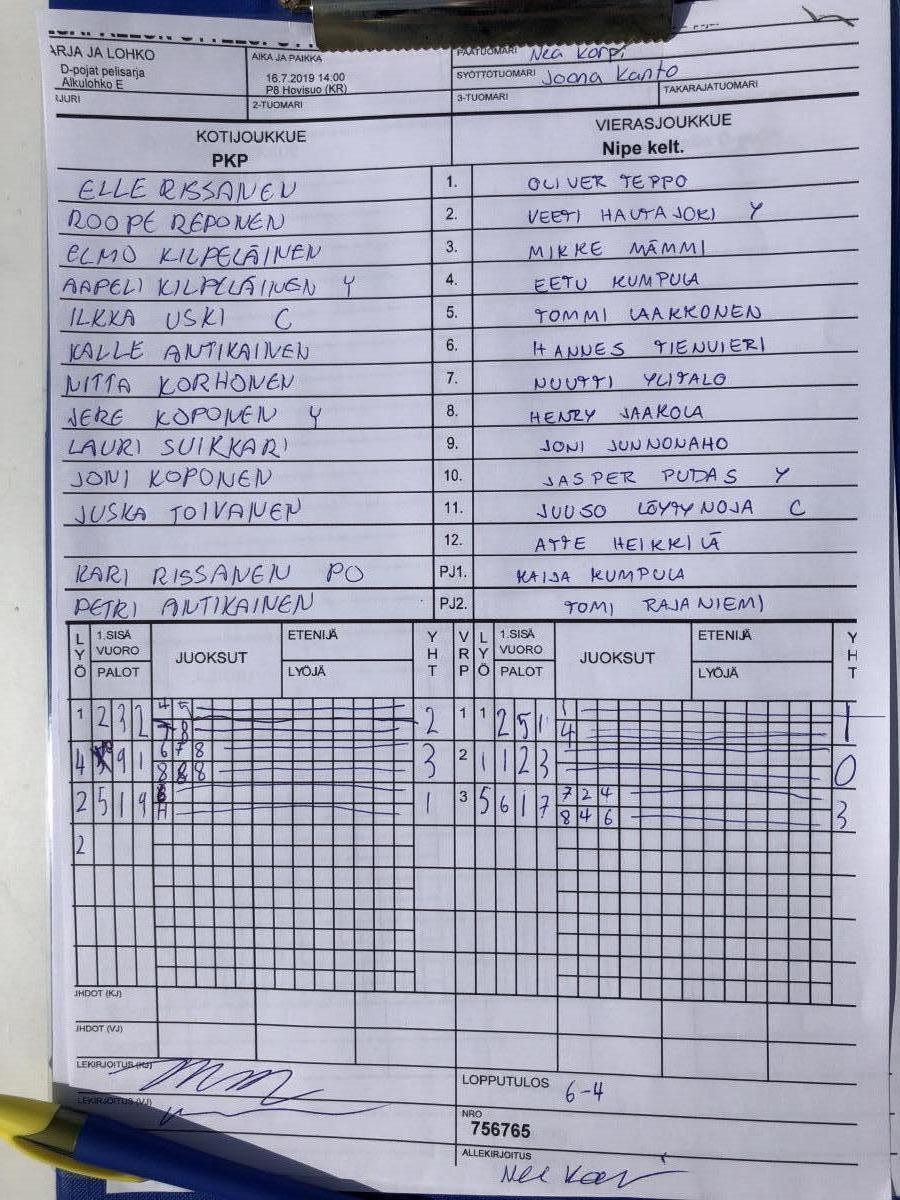 ARJA JA LOHKO
D-pojat pelisarja
Alkulohko E
AIKA JA PAIKKA
16.7.2019 14:00
P8 Hovisuo (KR)
2-TUOMARI
PÄÄTUOMARI Nea Korpi
SYÖTTÖTUOMARI Joona Kanto
3-TUOMARI TAKARAJATUOMARI
KOTIJOUKKUE VIERASJOUKKUE
PKP Nipe kelt.
ELLE RISSANEN 1. OLIVER TEPPO
ROOPE REPONEN 2. VEETI HAUTAJOKI Y
ELMO KILPELÄINEN 3. MIKKE MÄMMI
AAPELI KILPELÄINEN Y 4. EETU KUMPULA
ILKKA USKI C 5. TOMMI LAAKKONEN
KALLE ANTIKAINEN 6. HANNES TIENVIERI
NITTA KORHONEN 7. NUUTTI YLITALO
JERE KOPONEN Y 8. HENRY JAAKOLA
LAURI SUIKKARI 9. JONI JUNNONAHO
JONI KOPONEN 10. JASPER PUDAS Y
JUSKA TOIVANEN 11. JUUSO LÖYTYNOJA C
12. ATTE HEIKKILÄ
KARI RISSANEN PO PJ1. KAIJA KUMPULA
PETRI ANTIKAINEN PJ2. TOMI RAJANIEMI
LYÖ 1.SISÄ VUORO PALOT JUOKSUT ETENIJÄ LYÖJÄ YHT VRP LYÖ 1.SISÄ VUORO PALOT JUOKSUT ETENIJÄ LYÖJÄ YHT
1 2 3 2 4 5 2 1 1 2 5 1 1 1
7 8 4
4 9 1 6 7 8 3 2 1 1 2 3 0
8 8 8
2 5 1 9 1 3 5 6 1 7 7 2 4 3
H 8 4 6
2
JHDOT (KJ)
JHDOT (VJ)
LEKIRJOITUS (KJ)
LOPPUTULOS 6-4
LEKIRJOITUS (VJ)
NRO
756765
ALLEKIRJOITUS